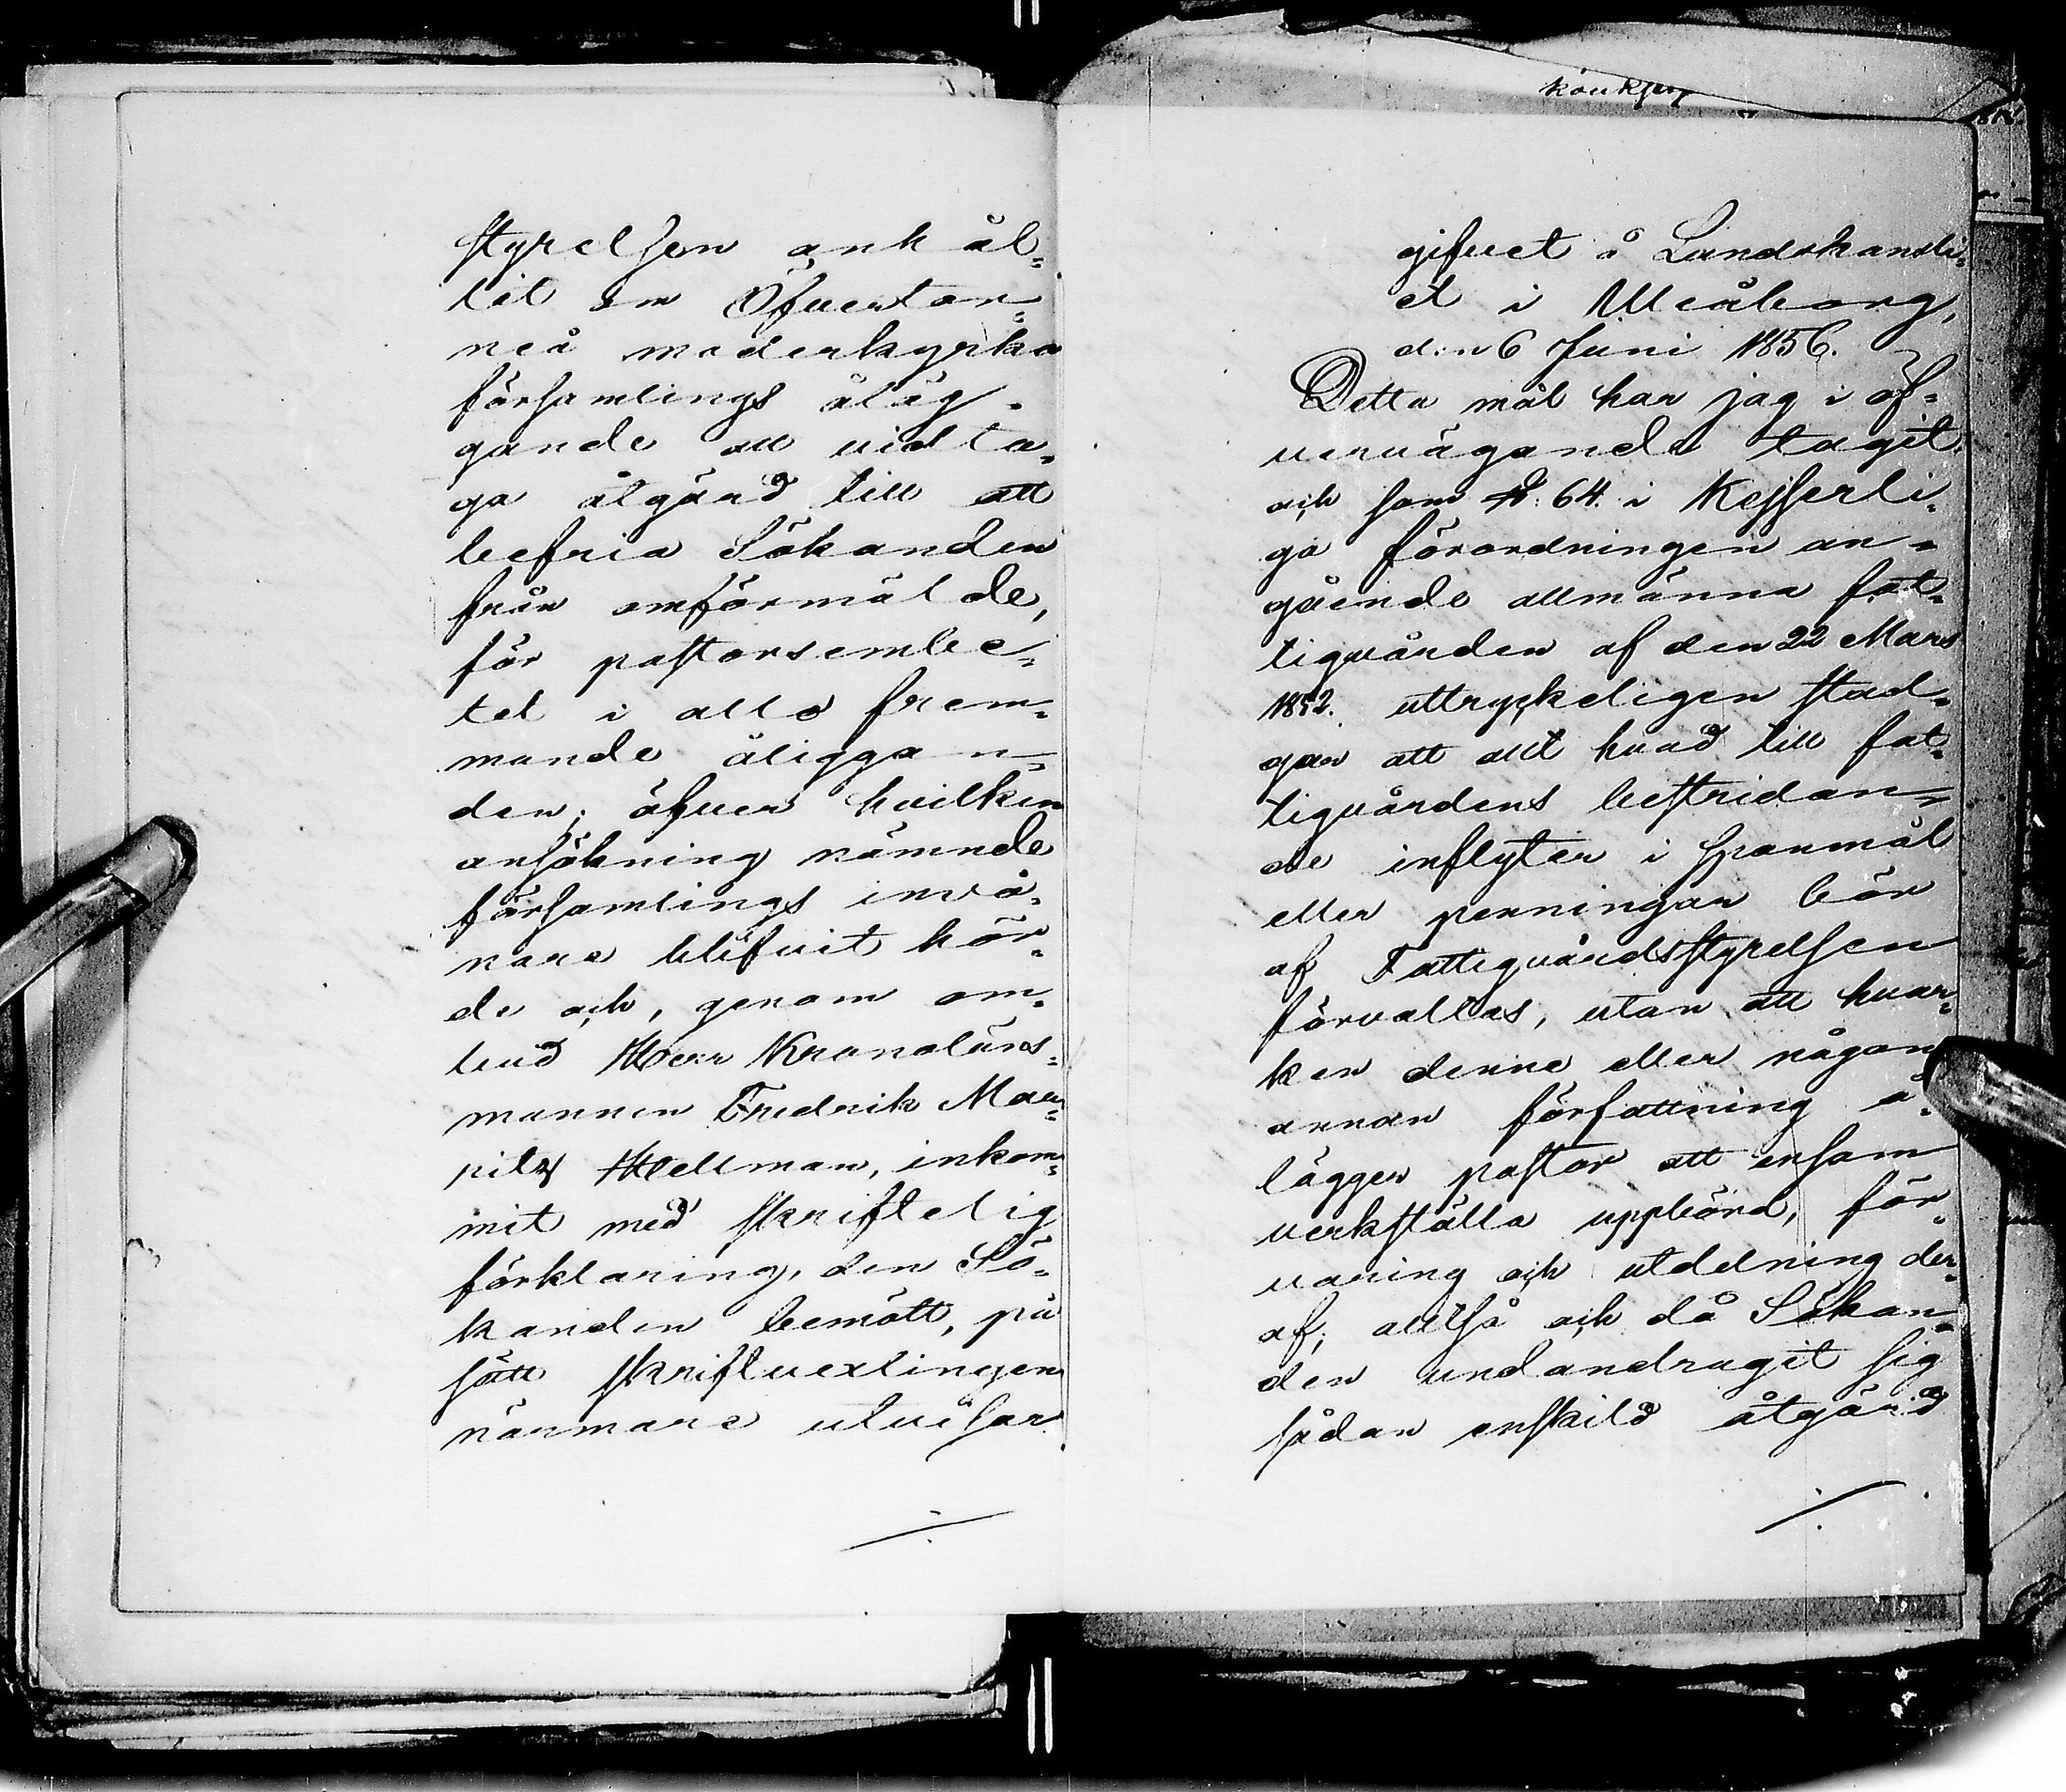 styrelsen anhål¬
lit om Öfvertor¬
neå moderkyrko
församlings åläg¬
gande att vidta¬
ga åtgärd till att
befria Sökanden
från omförmälde,
för pastorsembe¬
tet i allo frem¬
mande åliggan¬
den; öfver hvilken
ansökning nämnde
församlings invå¬
nare blifvit hör¬
de och, genom om¬
bud Herr Kronoläns¬
mannen Fredrik Mau¬
ritz Hellman, inkom¬
mit med skriftelig
förklaring, den Sö¬
kanden bemött, på
sätt skriftvexlingen
närmare utvisar.
gifvet å Landskansli¬
et i Uleåborg,
den 6 Juni 1856.
Detta mål har jag i öf¬
vervägande tagit
och som §. 64. i Kejserli¬
ga förordningen an¬
gående allmänna fat¬
tigvården af den 22 Mars
1852. uttryckeligen stad¬
gar att allt hvad till fat¬
tigvårdens bestridan¬
de inflyter i spanmål
eller penningar bör
af Fattigvårdsstyrelsen
förvaltas, utan att hvar¬
ken denne eller någon
annan författning å¬
lägger pastor att ensam
verkställa uppbörd, för¬
varing och utdelning der¬
af; alltså och då Sökan¬
den undandragit sig
sådan enskild åtgärd